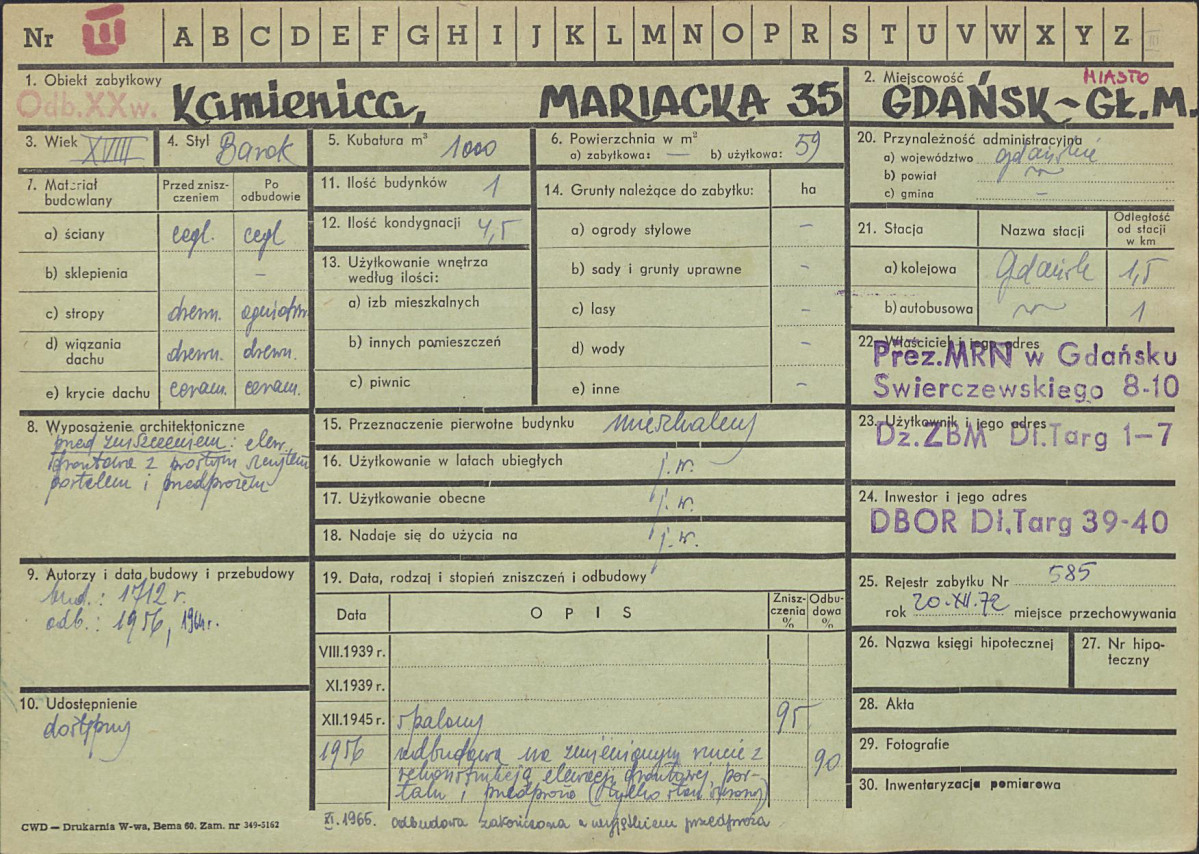 Nr III A B C D E F G H I J K L M N O P R S T U V W X Y Z
1. Obiekt zabytkowy
Odb. XX w.
Kamienica, MARIACKA 35
2. Miejscowość
MIASTO
GDAŃSK-GŁ.M.
3. Wiek XVIII
4. Styl Barok
5. Kubatura m³ 1000
6. Powierzchnia w m²
a) zabytkowa: — b) użytkowa: 59
20. Przynależność administracyjna
a) województwo gdańskie
b) powiat
c) gmina –
7. Materiał budowlany
Przed zniszczeniem
Po odbudowie
a) ściany cegl. cegl
b) sklepienia –
c) stropy drewn.
d) wiązania dachu drewn. drewn.
e) krycie dachu ceram. ceram.
11. Ilość budynków 1
12. Ilość kondygnacji 4,5
13. Użytkowanie wnętrza według ilości:
a) izb mieszkalnych
b) innych pomieszczeń
c) piwnic
14. Grunty należące do zabytku: ha
a) ogrody stylowe –
b) sady i grunty uprawne –
c) lasy –
d) wody –
e) inne –
21. Stacja
Nazwa stacji
Odległość od stacji w km
a) kolejowa Gdańsk 1,5
b) autobusowa 1
22. Właściciel i jego adres
Prez.MRN w Gdańsku
Swierczewskiego 8-10
23. Użytkownik i jego adres
Dz.ZBM Dł.Targ 1-7
24. Inwestor i jego adres
DBOR Dł.Targ 39-40
8. Wyposażenie architektoniczne
przed zniszczeniem: elew.
frontowa z prostym
portalem i przedprożem
15. Przeznaczenie pierwotne budynku mieszkalny
16. Użytkowanie w latach ubiegłych j.w.
17. Użytkowanie obecne j.w.
18. Nadaje się do użycia na j.w.
9. Autorzy i data budowy i przebudowy
bud.: 1712 r.
odb.: 1956, 1964r.
10. Udostępnienie
dostępny
19. Data, rodzaj i stopień zniszczeń i odbudowy
Data OPIS Zniszczenia % Odbudowa %
VIII.1939 r.
XI.1939 r.
XII.1945 r. spalony 95
1956 odbudowa na zmienionym rzucie z 90
rekonstrukcją elewacji frontowej, por-
talu i przedproża (tylko stan surowy)
XI.1965. odbudowa zakończona z wyjątkiem przedproża
25. Rejestr zabytku Nr 585
rok 20.XII.72 miejsce przechowywania
26. Nazwa księgi hipotecznej
27. Nr hipoteczny
28. Akta
29. Fotografie
30. Inwentaryzacja pomiarowa
CWD — Drukarnia W-wa, Bema 60. Zam. nr 349-5162